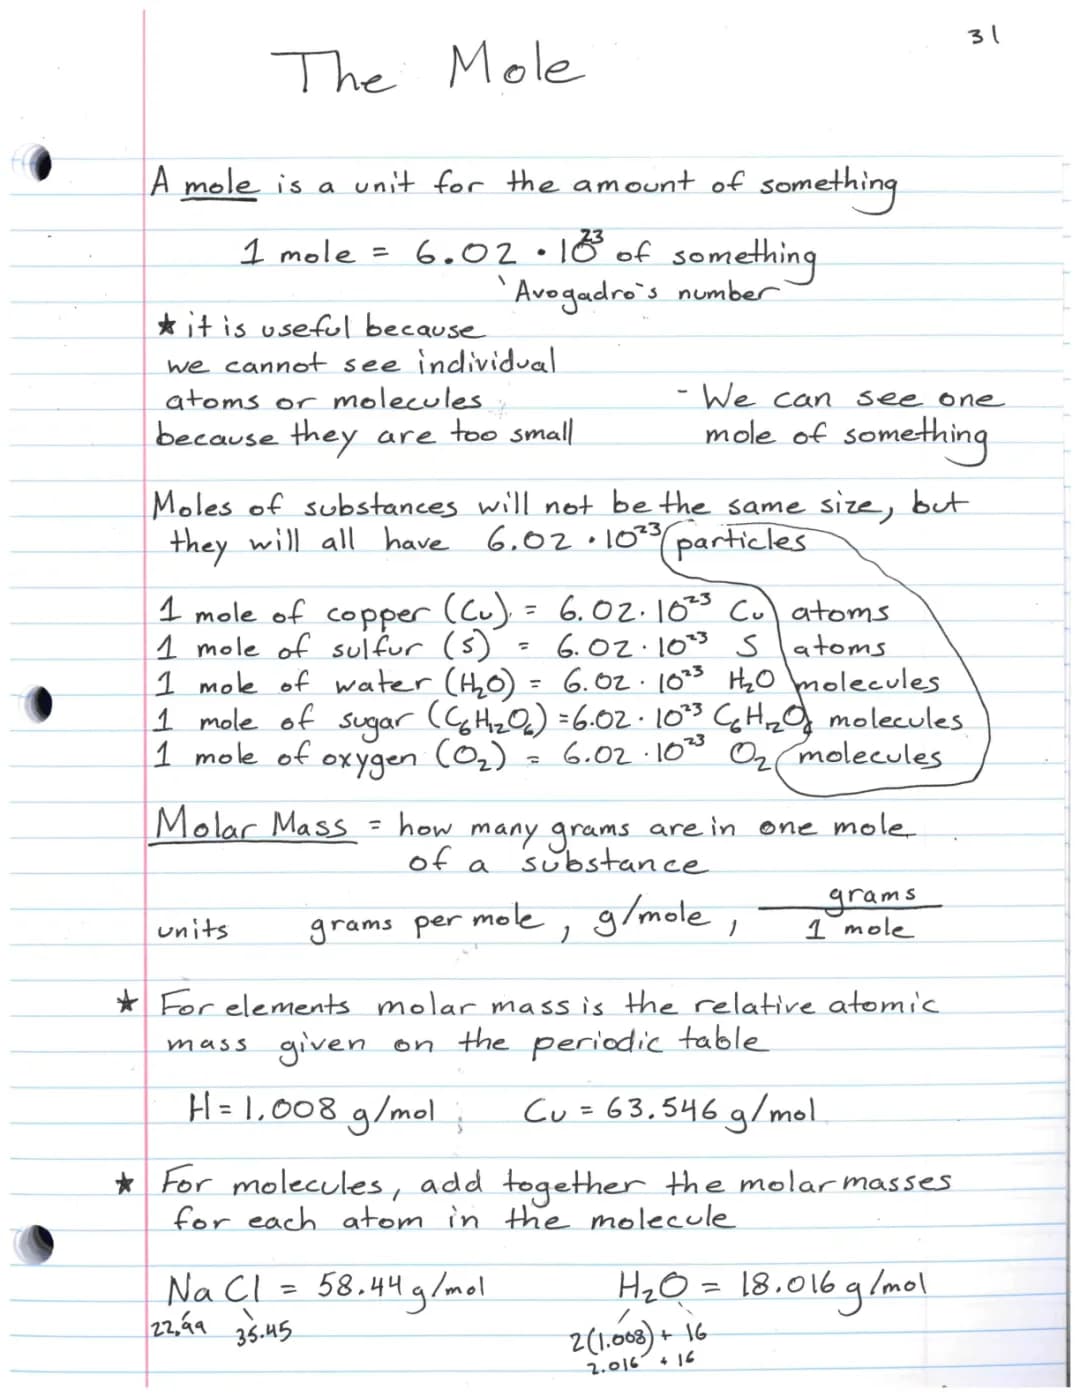 31
The Mole
A mole is a unit for the amount of something
1 mole = 6.02 · 10²³ of something
Avogadro's number
★ it is useful because
we cannot see individual
atoms or molecules
because they are too small
- We can see one
mole of something
Moles of substances will not be the same size, but
they will all have 6.02 · 10²³ particles
1 mole of copper (Cu) = 6.02 · 10²³ Cu atoms
1 mole of sulfur (S) = 6.02 · 10²³ S atoms
1 mole of water (H₂O) = 6.02 · 10²³ H₂O molecules
1 mole of sugar (C₆H₁₂O₆) = 6.02 · 10²³ C₆H₁₂O₆ molecules
1 mole of oxygen (O₂) = 6.02 · 10²³ O₂ molecules
Molar Mass = how many grams are in one mole
of a substance
units grams per mole, g/mole, grams
1 mole
★ For elements molar mass is the relative atomic
mass given on the periodic table
H = 1.008 g/mol ; Cu = 63.546 g/mol
★ For molecules, add together the molar masses
for each atom in the molecule
NaCl = 58.44 g/mol H₂O = 18.016 g/mol
22.99 35.45 2(1.008) + 16
2.016 + 16